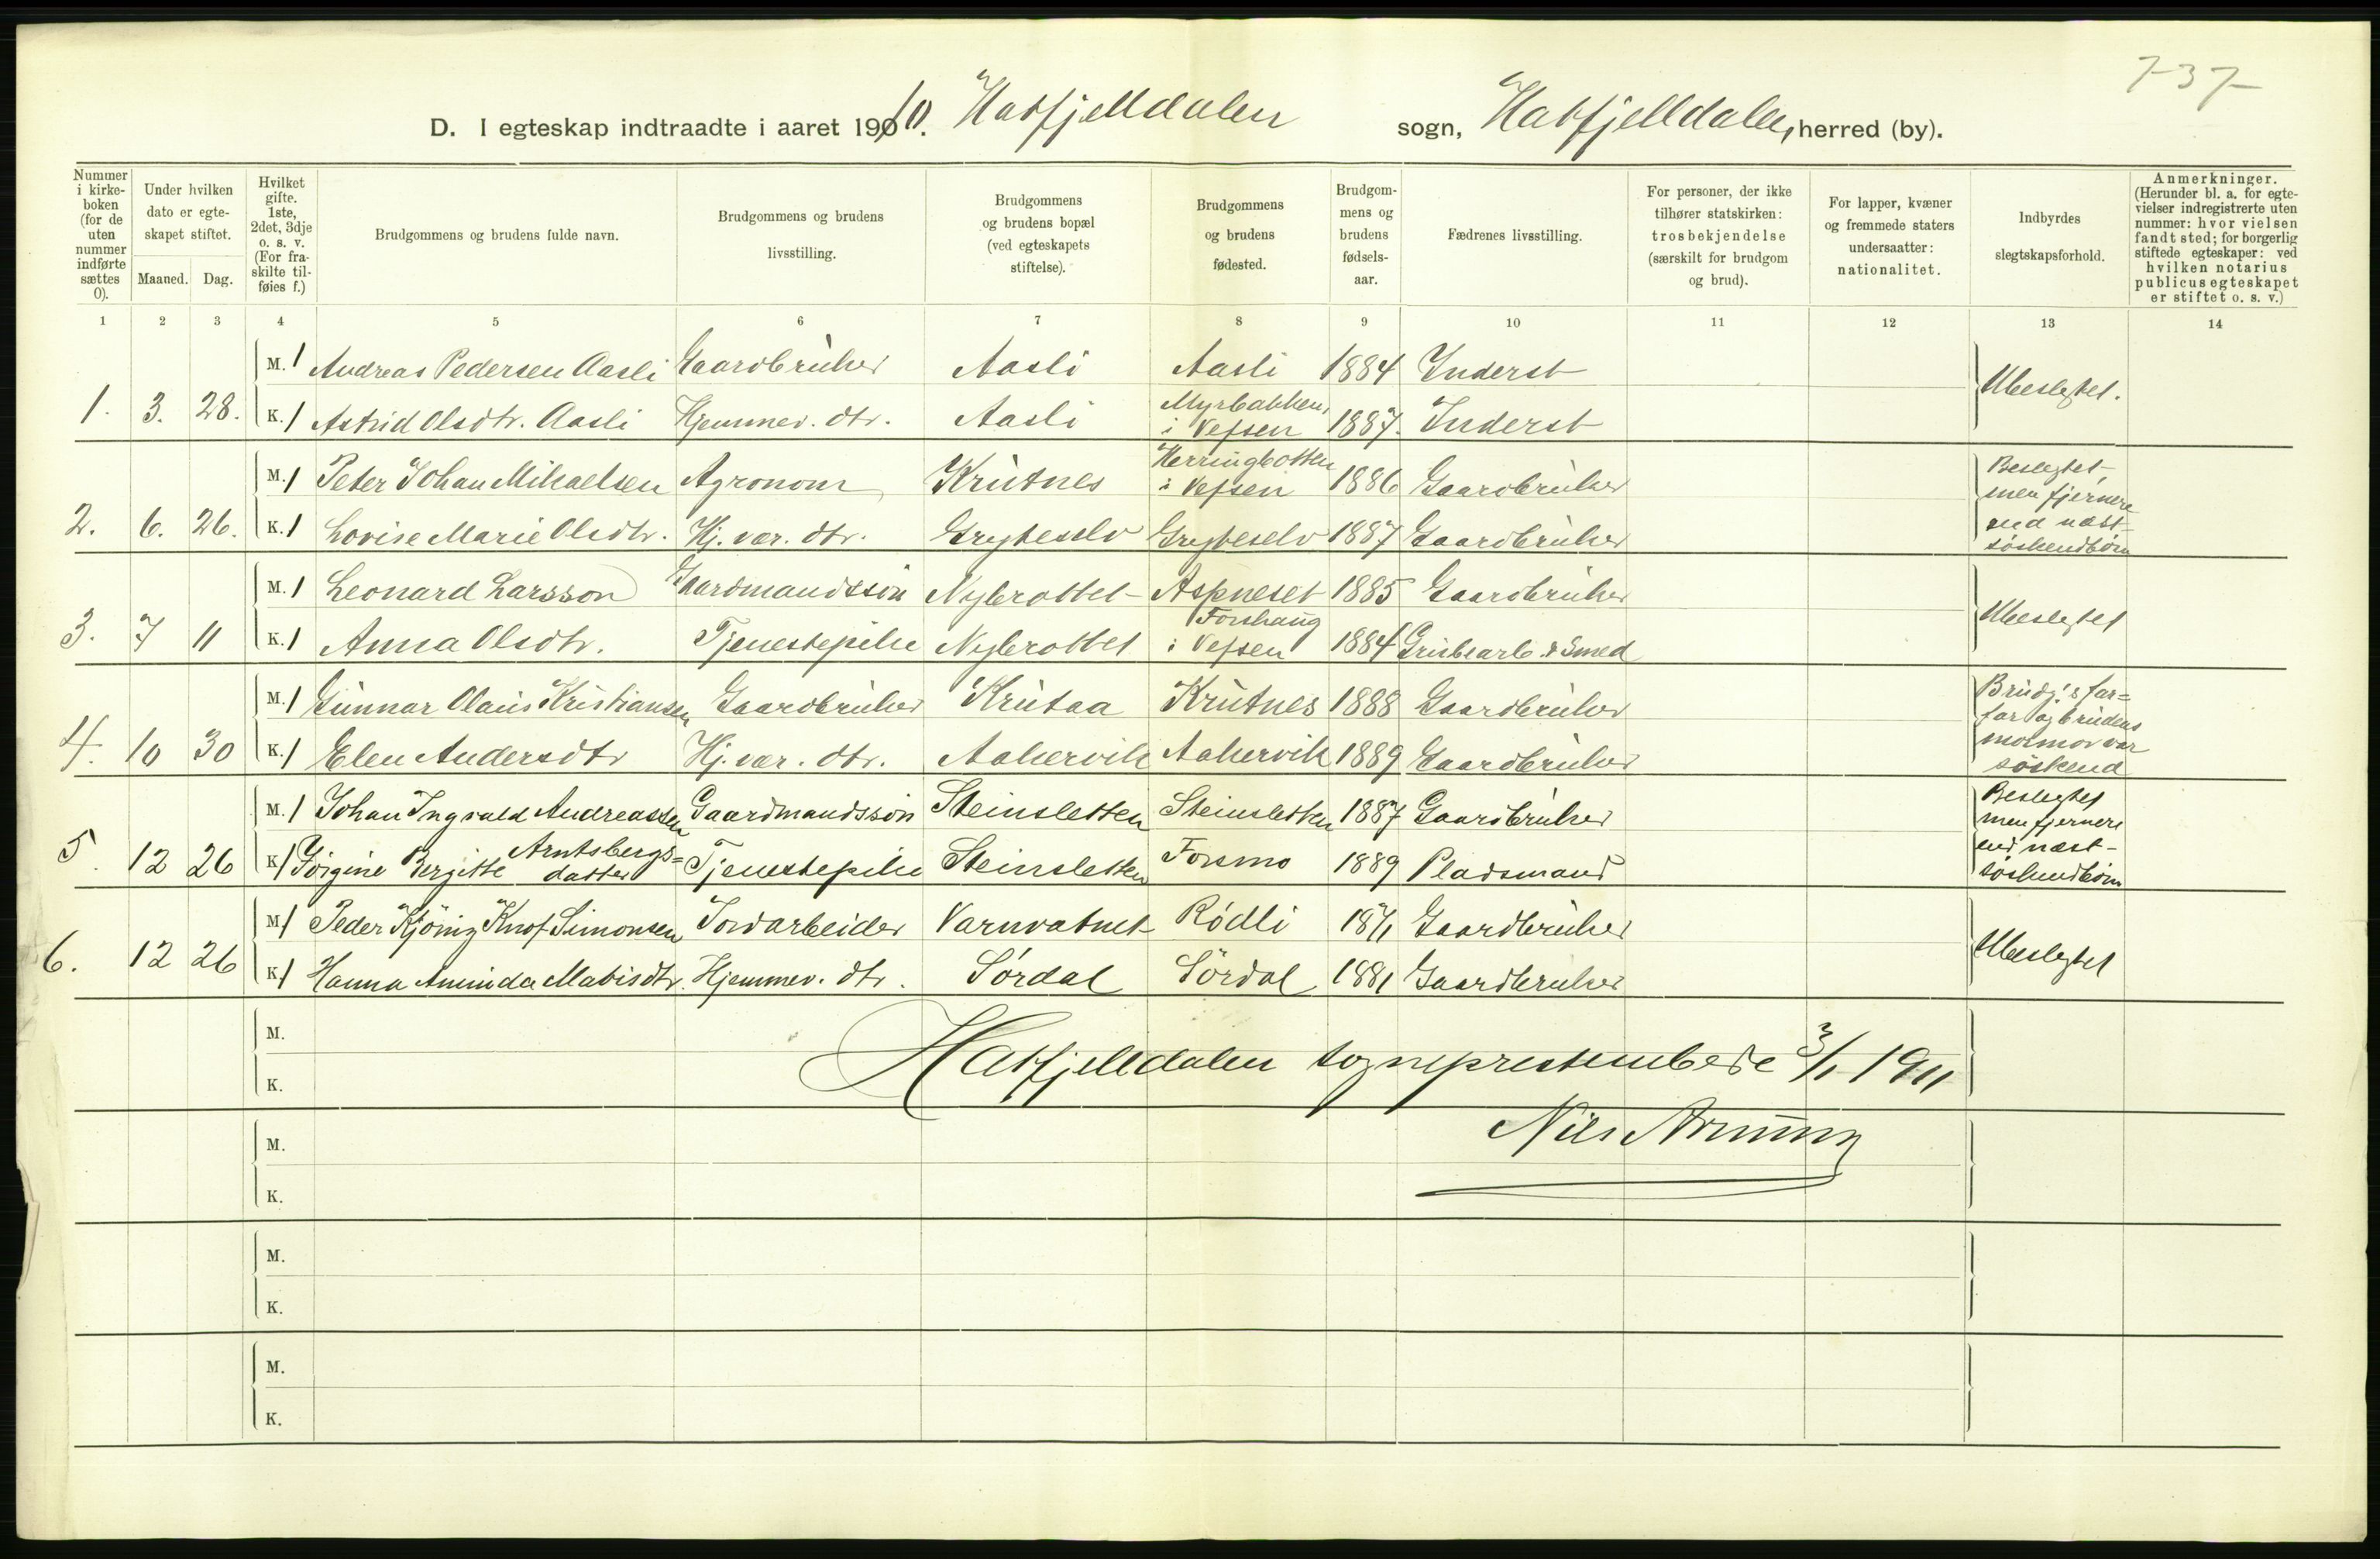 737
D. I egteskap indtraadte i aaret 1910. Hatfjelldalen sogn, Hatfjelldalen, herred (by).
Nummer i kirkeboken (for de uten nummer indførte sættes 0).
Under hvilken dato er egteskapet stiftet.
Maaned. Dag.
Hvilket gifte. 1ste, 2det, 3dje o. s. v. (For fraskilte tilføies f.)
Brudgommens og brudens fulde navn.
Brudgommens og brudens livsstilling.
Brudgommens og brudens bopæl (ved egteskapets stiftelse).
Brudgommens og brudens fødested.
Brudgommens og brudens fødselsaar.
Fædrenes livsstilling.
For personer, der ikke tilhører statskirken: trosbekjendelse (særskilt for brudgom og brud).
For lapper, kvæner og fremmede staters undersaatter: nationalitet.
Indbyrdes slegtskapsforhold.
Anmerkninger. (Herunder bl. a. for egtevielser indregistrerte uten nummer: hvor vielsen fandt sted; for borgerlig stiftede egteskaper: ved hvilken notarius publicus egteskapet er stiftet o. s. v.)
1 2 3 4 5 6 7 8 9 10 11 12 13 14
M. 1 Andreas Pedersen Aasli Gaardbruker Aasli Aasli 1884 Inderst
1. 3. 28. K. 1 Astrid Olsdtr. Aasli Hjemmev. dtr. Aasli Myrbakken, i Vefsen 1887. Inderst Ubeslegtet.
M. 1 Peter Johan Mikaelsen Agronom Krutnes Herringbotten i Vefsen 1886 Gaardbruker
2. 6. 26. K. 1 Lovise Marie Olsdtr. Hj. vær. dtr. Gryteselv Gryteselv 1887 Gaardbruker Beslegtet men fjernere end næstsöskendbörn
M. 1 Leonard Larsson Gaardmandssön Nybrottet Aspneset 1885 Gaardbruker
3. 7 11 K. 1 Anna Olsdtr. Tjenestepike Nybrottet Forshaug i Vefsen 1884 Grubearb. & Smed Ubeslegtet
M. 1 Gunnar Olaus Kristiansen Gaardbruker Krutaa Krutnes 1888 Gaardbruker
4. 10 30 K. 1 Elen Andersdtr Hj. vær. dtr. Aakervik Aakervik 1889 Gaardbruker Brudg's farfar og brudens mormor var söskend
M. 1 Johan Ingvald Andreassen Gaardmandssön Steinsletten Steinsletten 1887 Gaardbruker
5. 12 26 K. 1 Jörgine Bergitte Arntsbergsdatter Tjenestepike Steinsletten Forsmo 1889 Pladsmand Beslegtet men fjernere end næstsöskendbörn
M. 1 Peder Kjönig Knof Simonsen Jordarbeider Varnvatnet Rödli 1871 Gaardbruker
6. 12 26 K. 1 Hanna Aminda Mabisdtr. Hjemmev. dtr. Sördal Sördal 1881 Gaardbruker Ubeslegtet
M.
K.
Hatfjelldalen sogneprestembede 3/1 1911
M.
Nils
K.
M.
K.
M.
K.